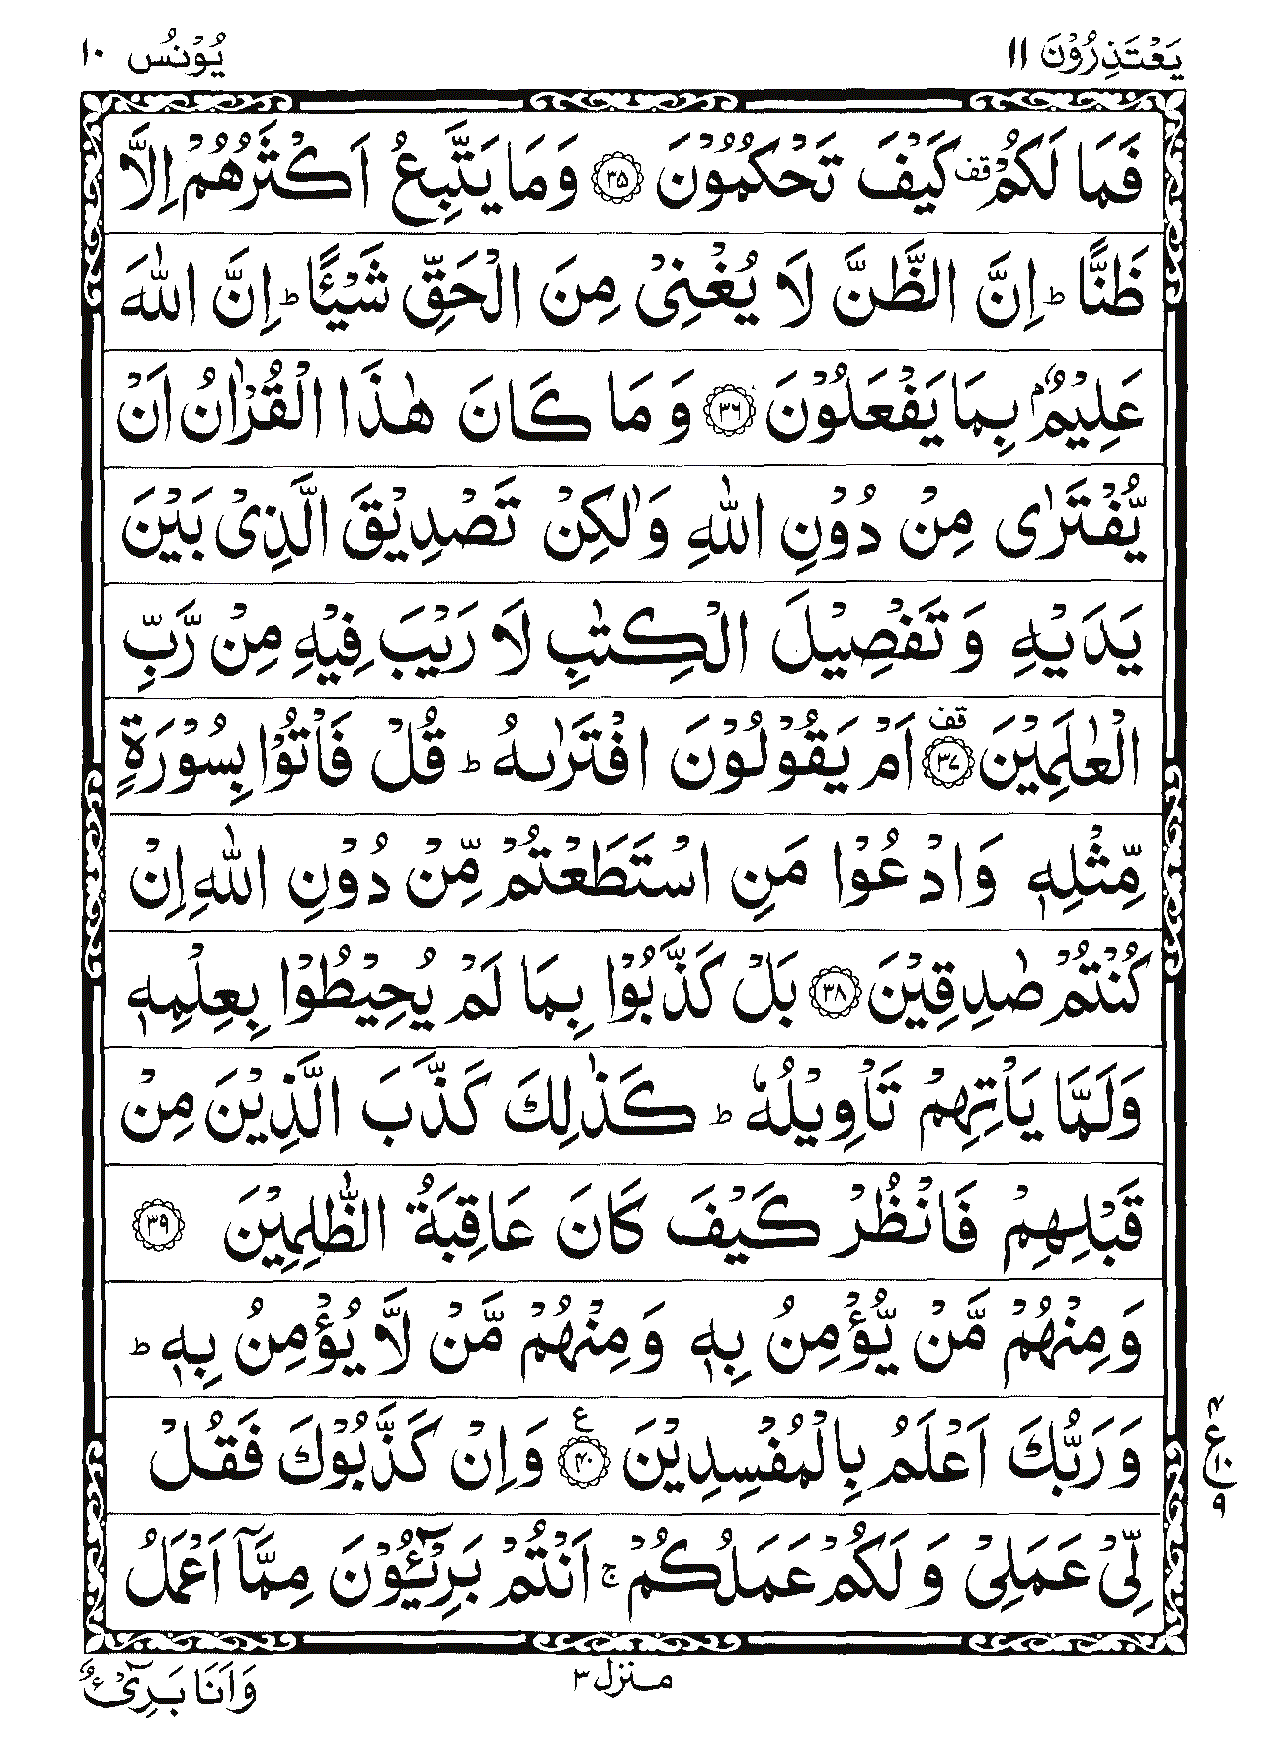 يَعْتَذِرُوْنَ ١١
يُوْنُسُ ١٠
فَمَا لَكُمْ قف كَيْفَ تَحْكُمُوْنَ ﴿٣٥﴾ وَمَا يَتَّبِعُ اَكْثَرُهُمْ اِلَّا
ظَنًّا ؕ اِنَّ الظَّنَّ لَا يُغْنِيْ مِنَ الْحَقِّ شَيْـًٔا ؕ اِنَّ اللّٰهَ
عَلِيْمٌۢ بِمَا يَفْعَلُوْنَ ﴿٣٦﴾ وَ مَا كَانَ هٰذَا الْقُرْاٰنُ اَنْ
يُّفْتَرٰى مِنْ دُوْنِ اللّٰهِ وَلٰكِنْ تَصْدِيْقَ الَّذِيْ بَيْنَ
يَدَيْهِ وَ تَفْصِيْلَ الْكِتٰبِ لَا رَيْبَ فِيْهِ مِنْ رَّبِّ
الْعٰلَمِيْنَ ﴿٣٧﴾ قف اَمْ يَقُوْلُوْنَ افْتَرٰىهُ ؕ قُلْ فَاْتُوْا بِسُوْرَةٍ
مِّثْلِهٖ وَادْعُوْا مَنِ اسْتَطَعْتُمْ مِّنْ دُوْنِ اللّٰهِ اِنْ
كُنْتُمْ صٰدِقِيْنَ ﴿٣٨﴾ بَلْ كَذَّبُوْا بِمَا لَمْ يُحِيْطُوْا بِعِلْمِهٖ
وَلَمَّا يَاْتِهِمْ تَاْوِيْلُهٗ ؕ كَذٰلِكَ كَذَّبَ الَّذِيْنَ مِنْ
قَبْلِهِمْ فَانْظُرْ كَيْفَ كَانَ عَاقِبَةُ الظّٰلِمِيْنَ ﴿٣٩﴾
وَمِنْهُمْ مَّنْ يُّؤْمِنُ بِهٖ وَمِنْهُمْ مَّنْ لَّا يُؤْمِنُ بِهٖ ؕ
وَرَبُّكَ اَعْلَمُ بِالْمُفْسِدِيْنَ ﴿٤٠﴾ ع وَاِنْ كَذَّبُوْكَ فَقُلْ
٤ ع ١٠ ٩
لِّيْ عَمَلِيْ وَ لَكُمْ عَمَلُكُمْ ۚ اَنْتُمْ بَرِيْٓـُٔوْنَ مِمَّاۤ اَعْمَلُ
منزل ٣
وَاَنَا بَرِيْٓءٌ